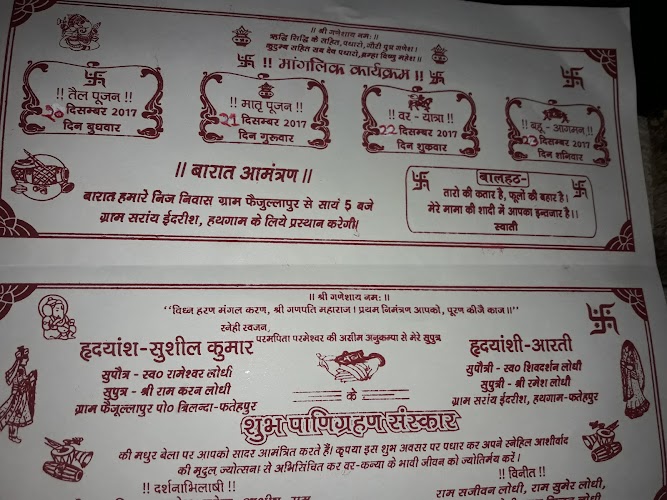 ॥ श्री गणेशाय नमः ॥
ऋद्धि सिद्धि के सहित, पधारो, गौरी पुत्र गणेश।
कुटुम्ब सहित सब देव पधारो, ब्रम्हा विष्णु महेश॥
!! मांगलिक कार्यक्रम !!
!! तैल पूजन !!
20 दिसम्बर 2017
दिन बुधवार
!! मातृ पूजन !!
21 दिसम्बर 2017
दिन गुरूवार
!! वर - यात्रा !!
22 दिसम्बर 2017
दिन शुक्रवार
!! बहू - आगमन !!
23 दिसम्बर 2017
दिन शनिवार
॥ बारात आमंत्रण ॥
बारात हमारे निज निवास ग्राम फैजुल्लापुर से सायं 5 बजे
ग्राम सरांय ईदरीश, हथगाम के लिये प्रस्थान करेगी।
बालहठ-
तारो की कतार है, फूलो की बहार है।
मेरे मामा की शादी में आपका इन्तजार है।।
स्वाती
॥ श्री गणेशाय नमः ॥
''विघ्न हरण मंगल करण, श्री गणपति महाराज। प्रथम निमंत्रण आपको, पूरण कीजै काज॥''
स्नेही स्वजन,
परमपिता परमेश्वर की असीम अनुकम्पा से मेरे सुपुत्र
हृदयांश-सुशील कुमार
सुपौत्र - स्व० रामेश्वर लोधी
सुपुत्र - श्री राम करन लोधी
ग्राम फैजूल्लापुर पो० त्रिलन्दा-फतेहपुर
हृदयांशी-आरती
सुपौत्री - स्व० शिवदर्शन लोधी
सुपुत्री - श्री रमेश लोधी
ग्राम सरांय ईदरीश, हथगाम-फतेहपुर
के
शुभ पाणिग्रहण संस्कार
की मधुर बेला पर आपको सादर आमंत्रित करते हैं। कृपया इस शुभ अवसर पर पधार कर अपने स्नेहिल आशीर्वाद
की मृदुल ज्योत्सना से अभिसिंचित कर वर-कन्या के भावी जीवन को ज्योतिर्मय करें।
!! दर्शनाभिलाषी !!
!! विनीत !!
राम सजीवन लोधी, राम सुमेर लोधी,